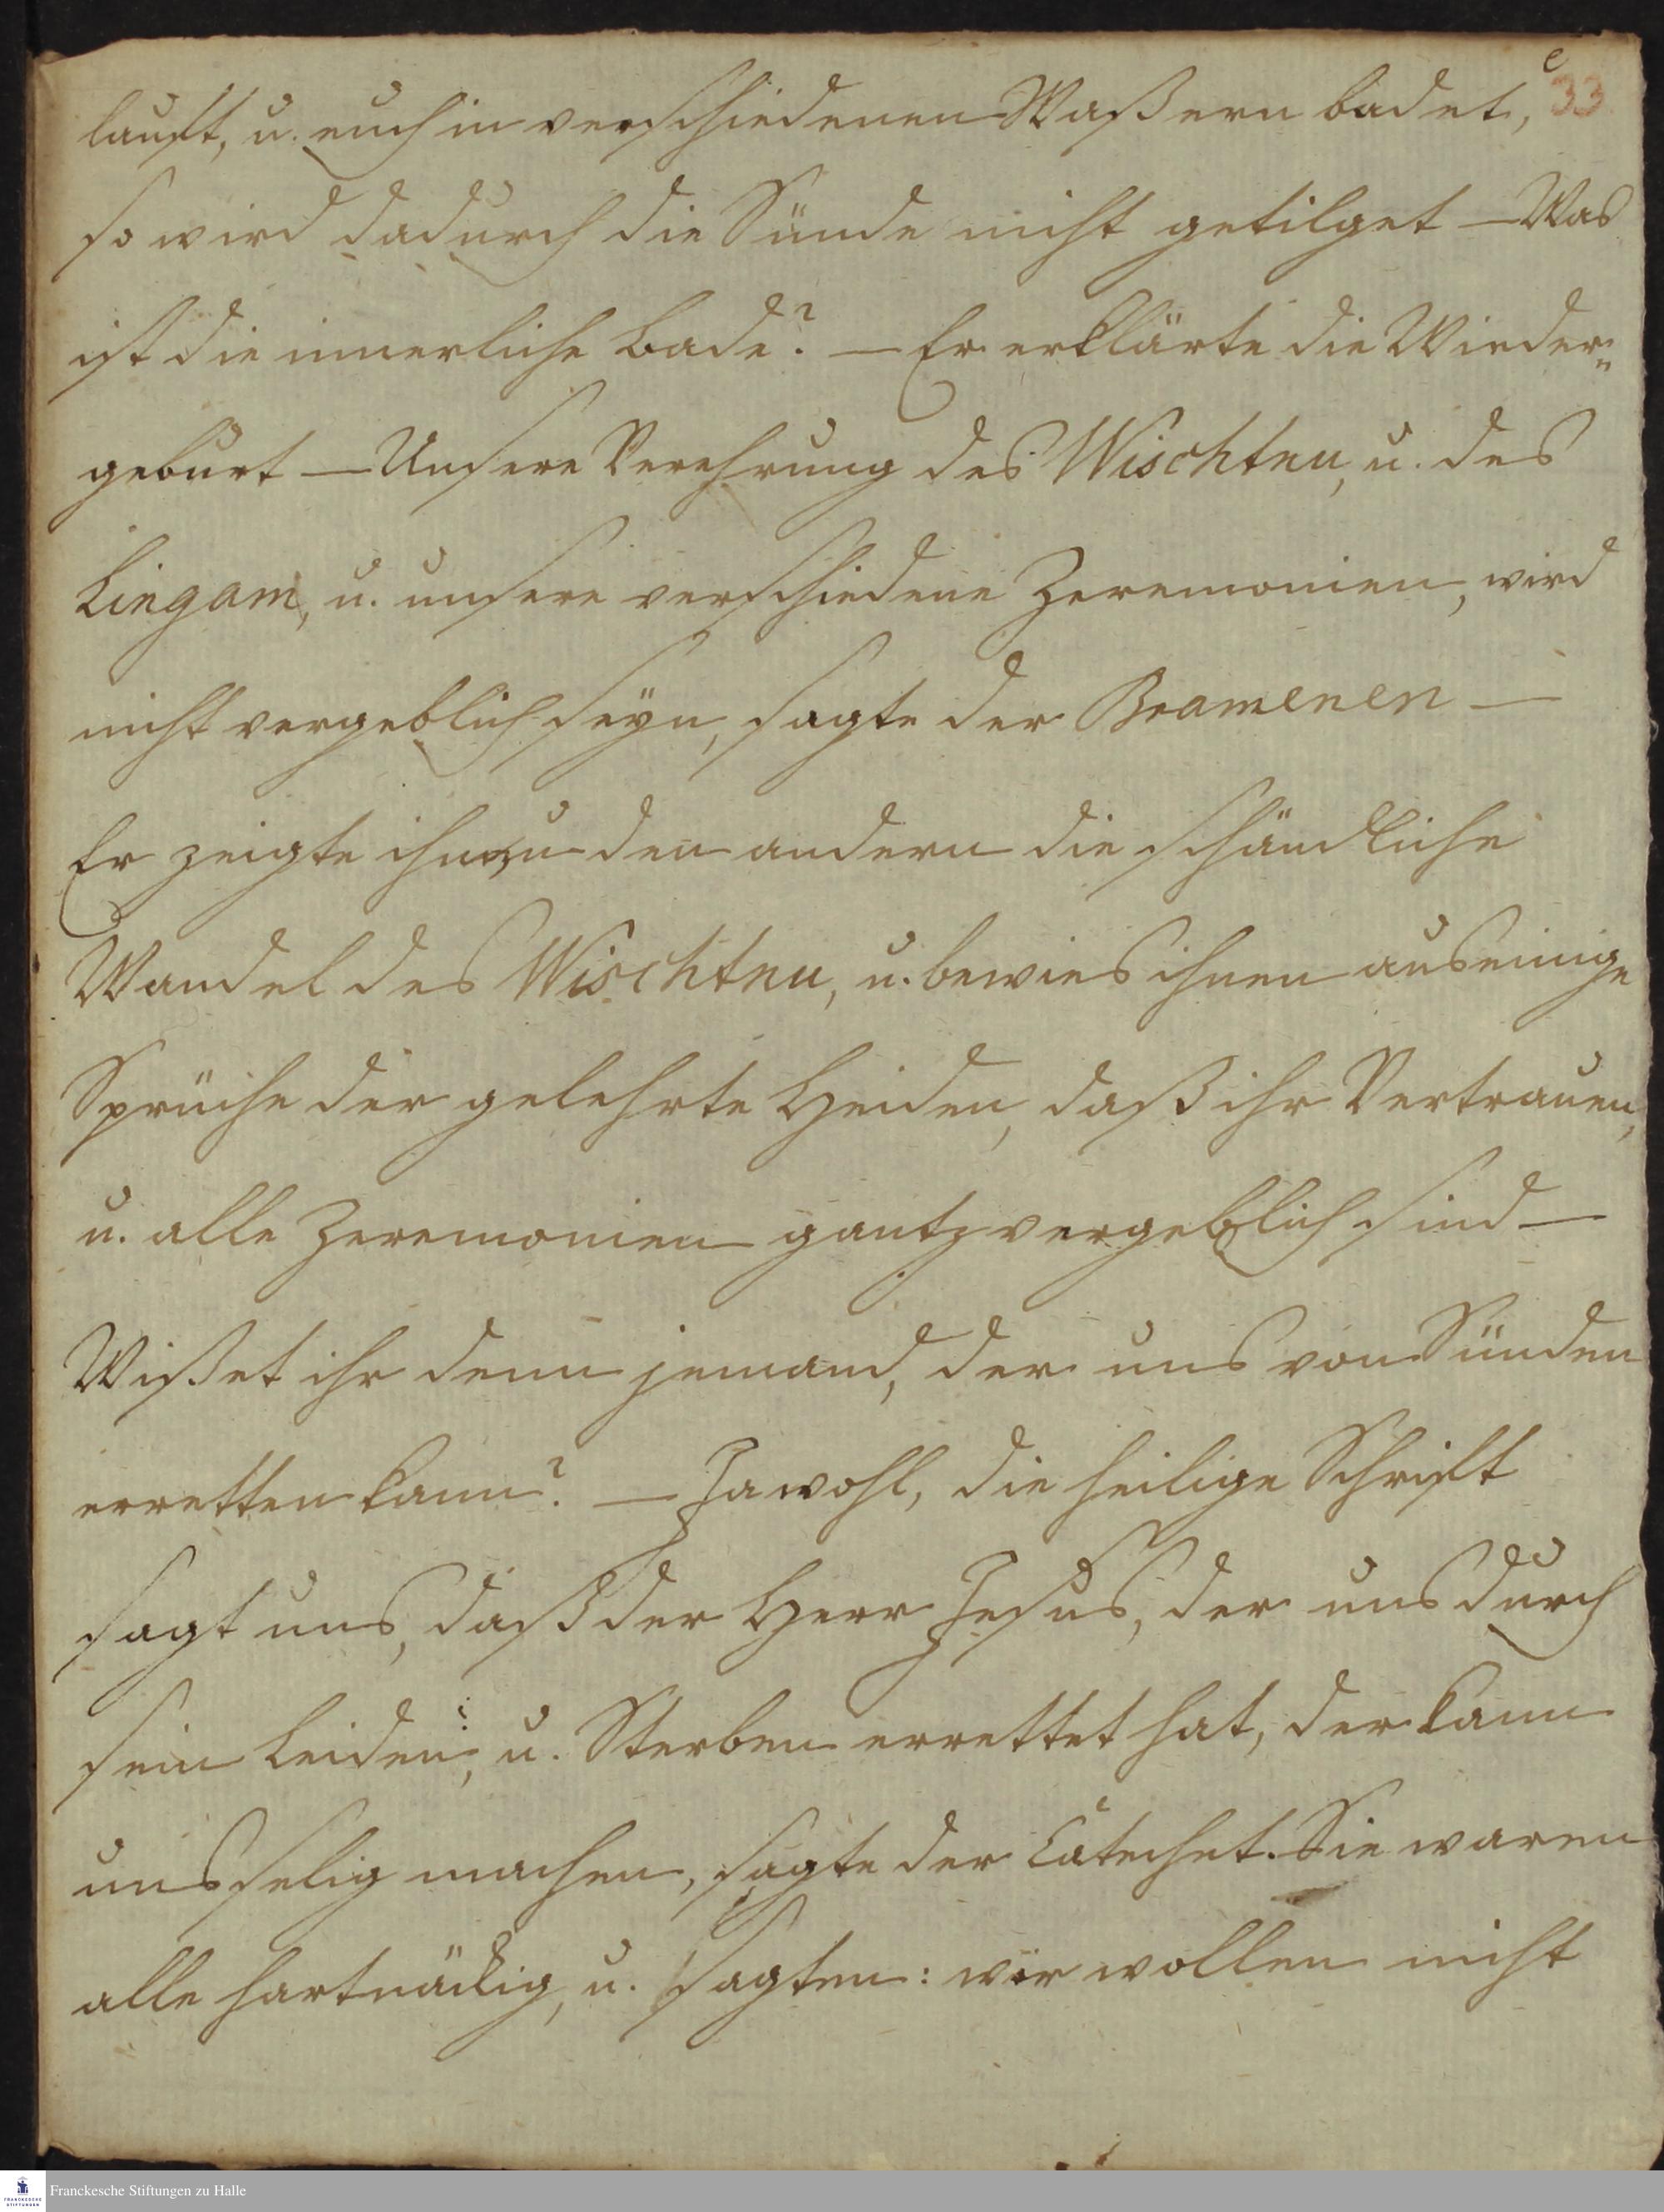 e
33
lauft, u. euch in verschiedenen Waßern badet,
so wird dadurch die Sünde nicht getilget — Was
ist die innerliche Bade? — Er erklärte die Wieder-
geburt — Unsere Verehrung des Wischtnu, u. des
Lingam, u. unsere verschiedene Zeremonien, wird
nicht vergeblich seÿn, sagte der Bramenen —
Er zeigte ihm, u den andern die schändliche
Wandel des Wischtnu, u. bewies ihnen aus einige
Sprüche der gelehrte Heiden, daß ihr Vertrauen,
u. alle Zeremonien gantz vergeblich sind —
Wißet ihr denn jemand, der uns von Sünden
erretten kann? — Jawohl, die heilige Schrift
sagt uns, daß der Herr Jesus, der uns durch
sein Leiden, u. Sterben errettet hat, der kann
uns selig machen, sagte der Catechet. Sie waren
alle hartnäckig, u. sagten: wir wollen nicht
Franckesche Stiftungen zu Halle
FRANCKESCHE
STIFTUNGEN